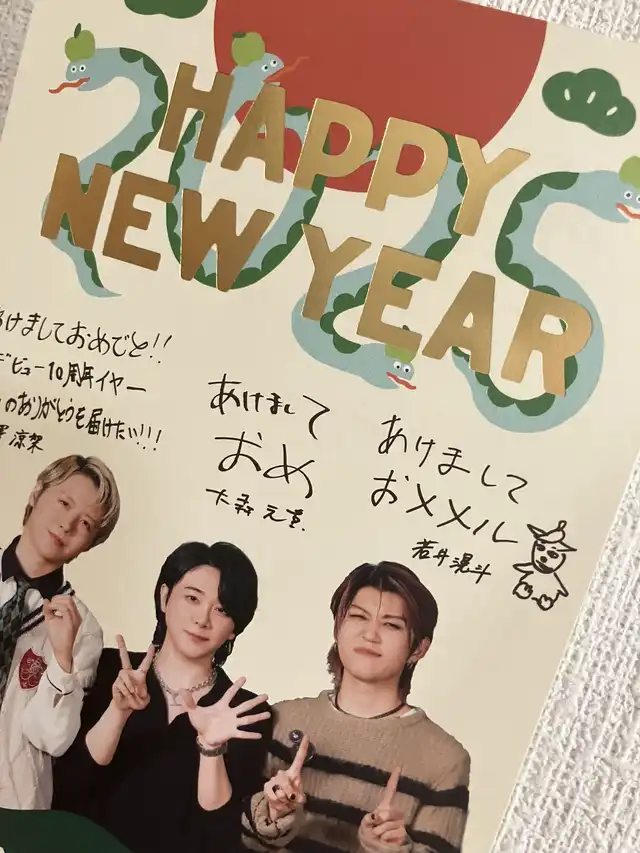 HAPPY
NEW YEAR
2025
けましておめでと!!
デビュー10周年イヤー
のありがとうを届けたい!!!
涼架
あけまして
おめ
大森元貴.
あけまして
おメメル
若井滉斗